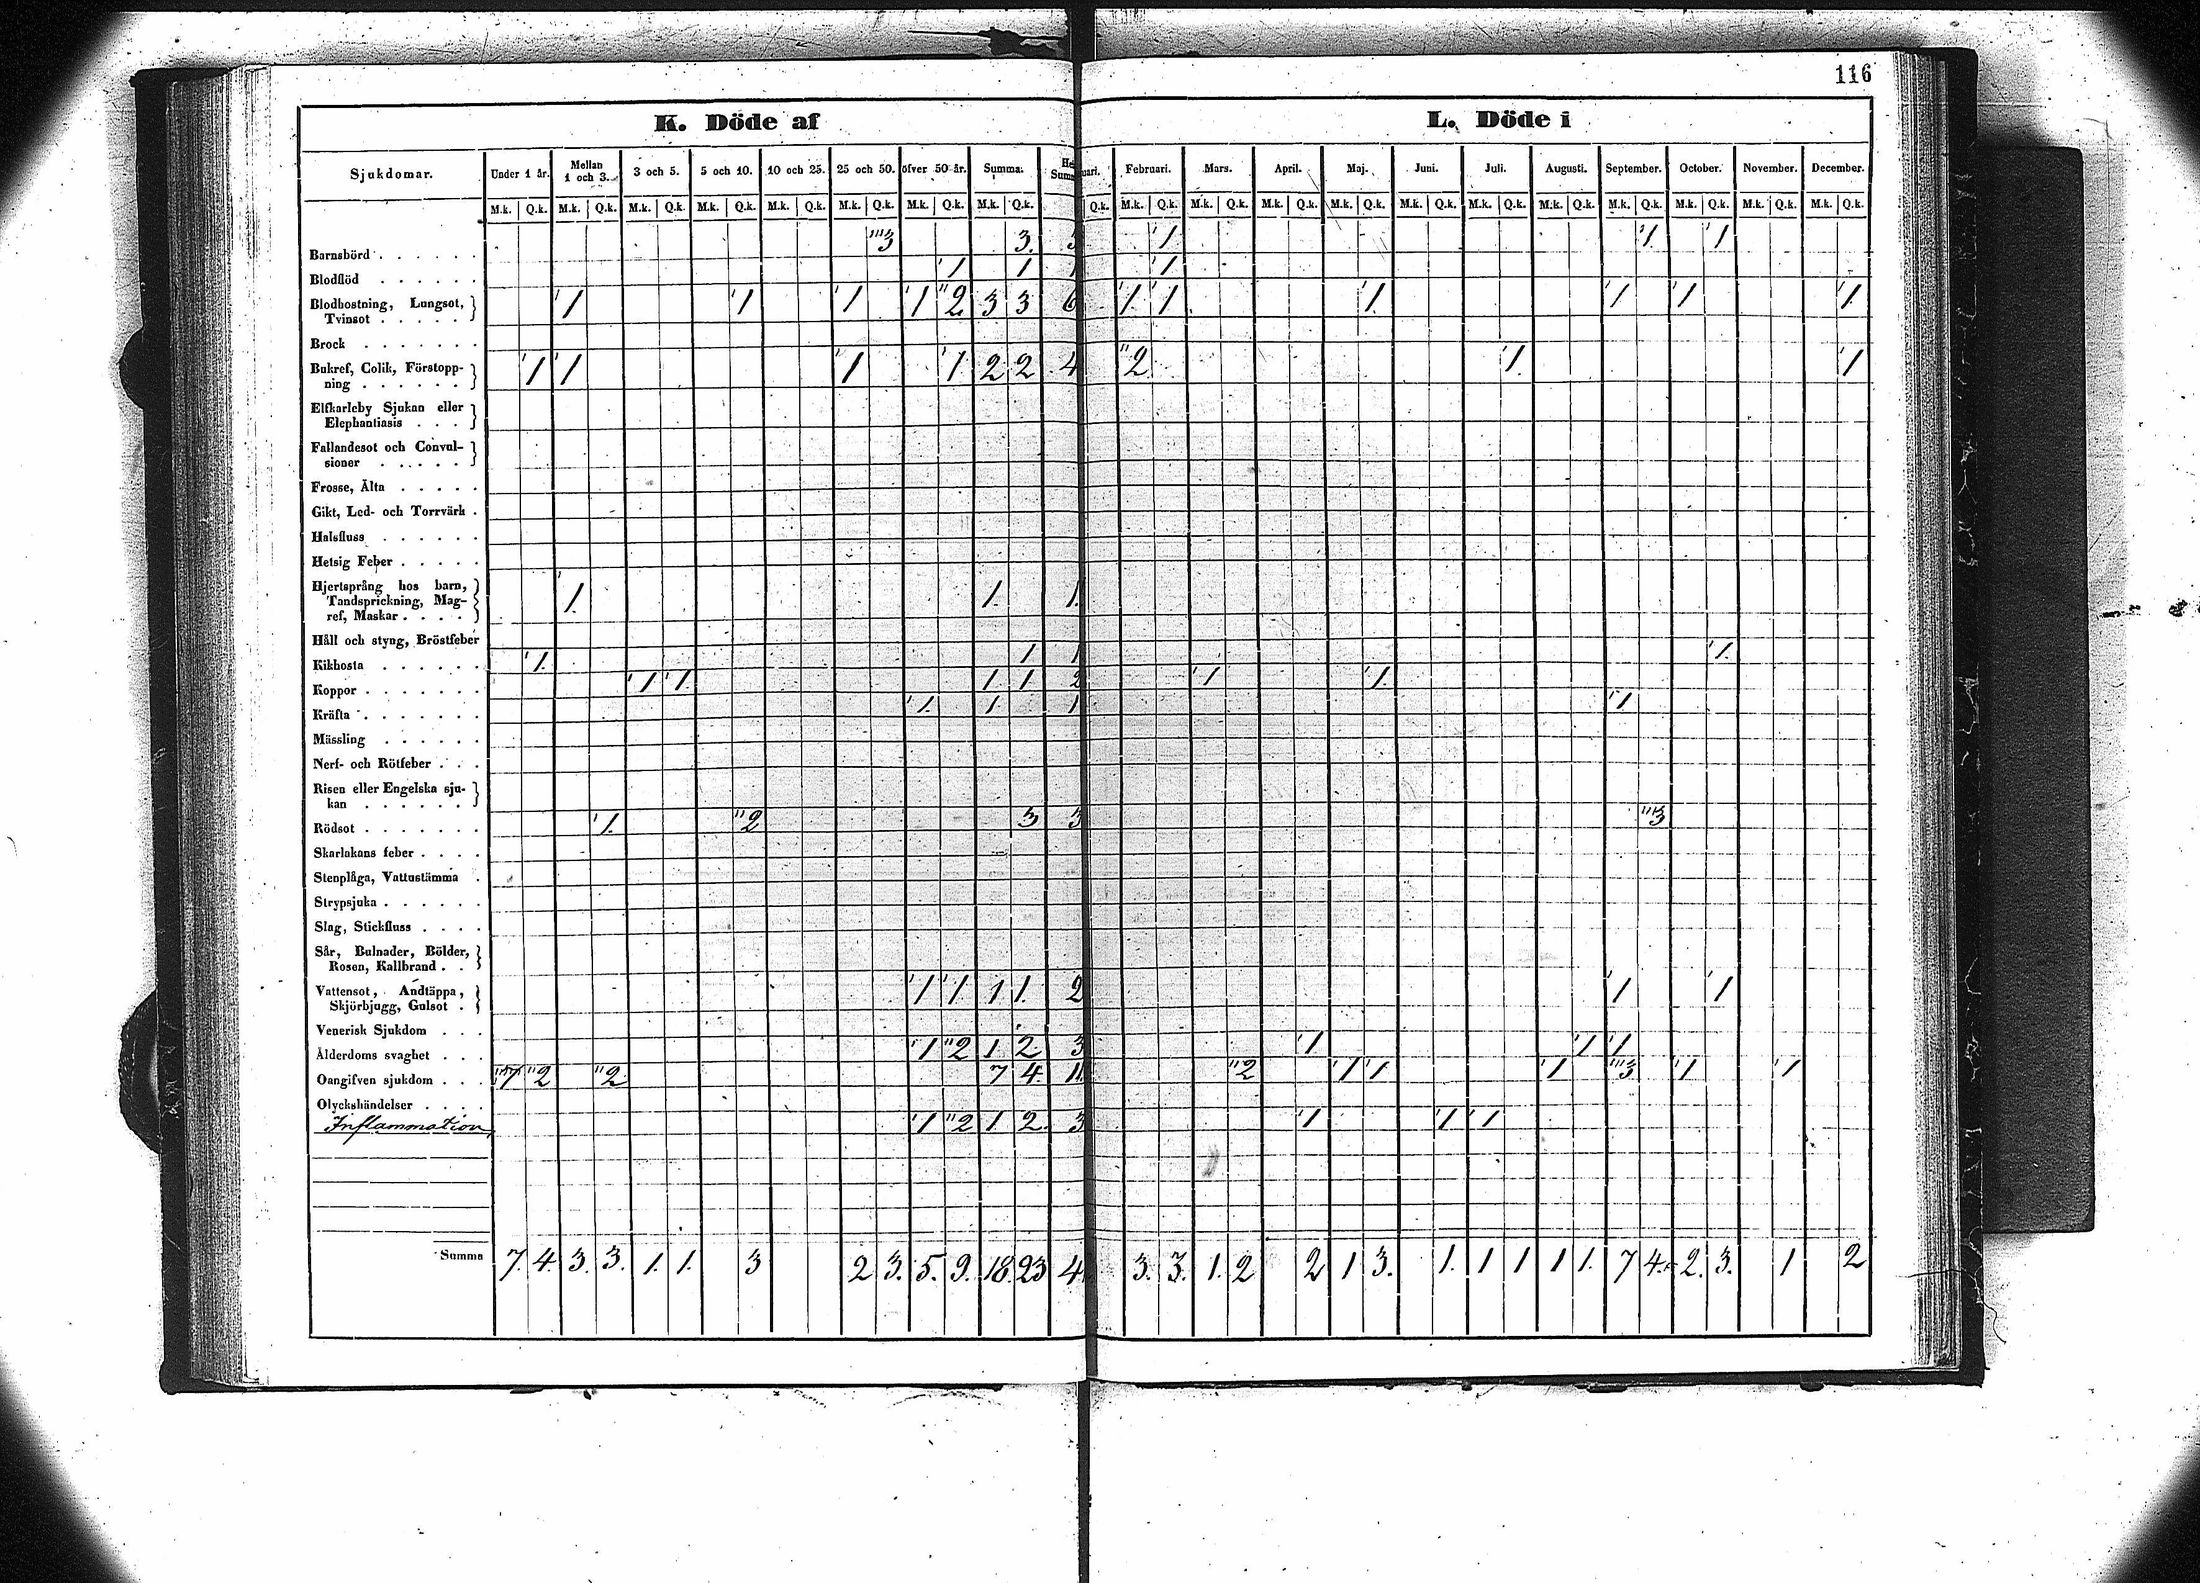 116
K. Döde af
L. Döde i
Sjukdomar. Under 1 år. Mellan 1 och 3. 3 och 5. 5 och 10. 10 och 25. 25 och 50. öfver 50 år. Summa. Hel Summ uari. Februari. Mars. April. Maj. Juni. Juli. Augusti. September. October. November. December.
M.k. Q.k. M.k. Q.k. M.k. Q.k. M.k. Q.k. M.k. Q.k. M.k. Q.k. M.k. Q.k. M.k. Q.k. Q.k. M.k. Q.k. M.k. Q.k. M.k. Q.k. M.k. Q.k. M.k. Q.k. M.k. Q.k. M.k. Q.k. M.k. Q.k. M.k. Q.k. M.k. Q.k. M.k. Q.k.
Barnsbörd . . . . . . 3 3. 3 1 1 1
Blodflöd . . . . . . 1 1 1 1
Blodhostning, Lungsot,
Tvinsot . . . . . 1 1 1 1 2 3 3 6 1 1 1 1 1 1
Brock . . . . . . .
Bukref, Colik, Förstopp-
ning . . . . . . 1 1 1 1 2 2 4 2 1 1
Elfkarleby Sjukan eller
Elephantiasis . . .
Fallandesot och Convul-
sioner . . . . .
Frosse, Älta . . . . .
Gikt, Led- och Torrvärk .
Halsfluss . . . . . .
Hetsig Feber . . . . .
Hjertsprång hos barn,
Tandsprickning, Mag-
ref, Maskar . . . . 1. 1. 1.
Håll och styng, Bröstfeber
Kikhosta . . . . . . 1. 1 1 1.
Koppor . . . . . . . 1 1. 1 1 2 1 1.
Kräfta . . . . . . . 1. 1 1 1
Mässling . . . . . .
Nerf- och Rötfeber . . .
Risen eller Engelska sju-
kan . . . . . .
Rödsot . . . . . . . 1. 2 3 3 3
Skarlakans feber . . . .
Stenplåga, Vattustämma .
Strypsjuka . . . . . .
Slag, Stickfluss . . . .
Sår, Bulnader, Bölder,
Rosen, Kallbrand . .
Vattensot, Andtäppa,
Skjörbjugg, Gulsot . 1 1 1 1. 2 1 1
Venerisk Sjukdom . . .
Ålderdoms svaghet . . . 1 2 1 2. 3 1 1 1
Oangifven sjukdom . . . 7 2 2 7 4. 11 2 1 1 1 3 1 1
Olyckshändelser . . . .
Inflammation 1 2 1 2. 3 1 1 1
Summa 7. 4. 3. 3. 1. 1. 3 2 3. 5. 9. 18. 23 4 3. 3. 1. 2 2 1 3. 1. 1 1 1 1. 7 4. 2. 3. 1 2